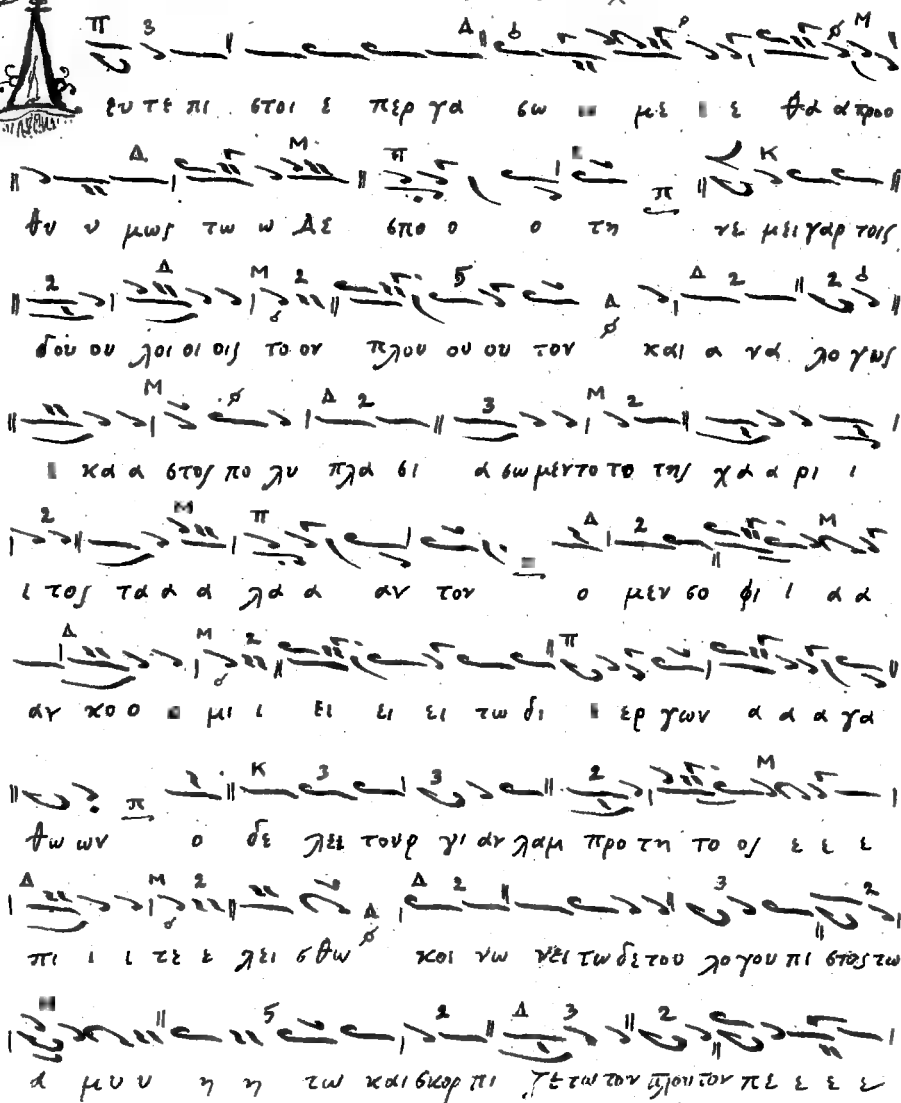 ευ τε πι στοι ε περ γα σω με ε θα α προ ο
θυ υ μως τω ω Δε σπο ο ο τη νε μει γαρ τοις
δου ου λοι οι οις το ον πλου ου ου τον και α να λο γως
ε κα α στος πο λυ πλα σι α σω μεν το το της χα α ρι ι
ι τος τα α α λα α αν τον ο μεν σο φι ι α α
αν κο ο μι ι ει ει ει τω δι ερ γων α α α γα
θω ων ο δε λει τουρ γι αν λαμ προ τη το ος ε ε ε
πι ι ι τε ε λει σθω κοι νω νει τω δε του λο γου πι στος τω
α μυ υ η η τω και σκορ πι ζε τω τον πλου τον πε ε ε ε